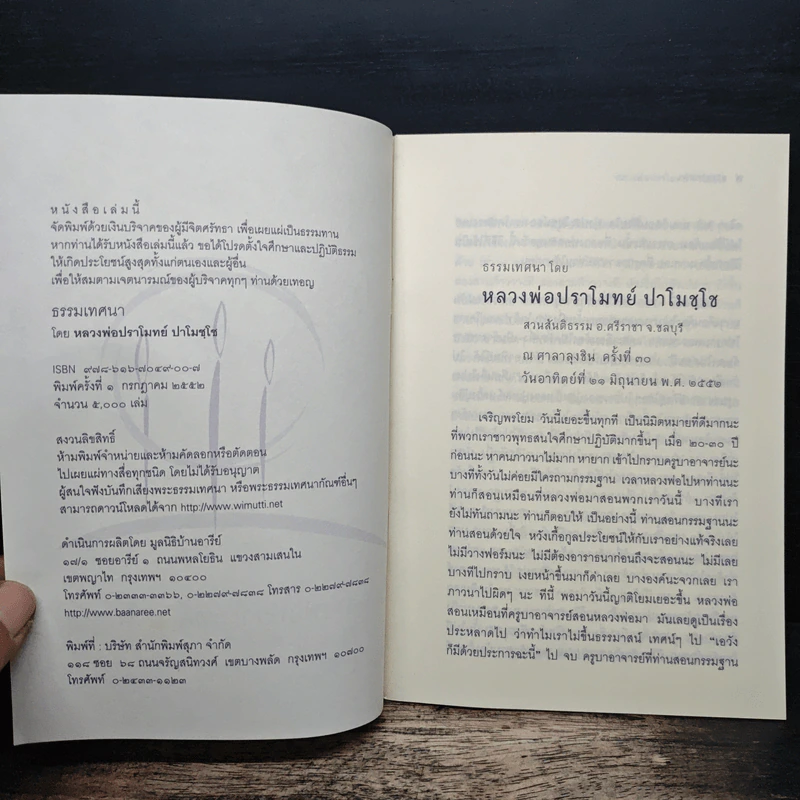 หนังสือเล่มนี้
จัดพิมพ์ด้วยเงินบริจาคของผู้มีจิตศรัทธา เพื่อเผยแผ่เป็นธรรมทาน
หากท่านได้รับหนังสือเล่มนี้แล้ว ขอได้โปรดตั้งใจศึกษาและปฏิบัติธรรม
ให้เกิดประโยชน์สูงสุดทั้งแก่ตนเองและผู้อื่น
เพื่อให้สมตามเจตนารมณ์ของผู้บริจาคทุกๆ ท่านด้วยเทอญ
ธรรมเทศนา
โดย หลวงพ่อปราโมทย์ ปาโมชฺโช
ISBN ๙๗๘-๖๑๖-๗๐๔๙-๐๐-๗
พิมพ์ครั้งที่ ๑ กรกฎาคม ๒๕๕๒
จำนวน ๕,๐๐๐ เล่ม
สงวนลิขสิทธิ์
ห้ามพิมพ์จำหน่ายและห้ามคัดลอกหรือตัดตอน
ไปเผยแผ่ทางสื่อทุกชนิด โดยไม่ได้รับอนุญาต
ผู้สนใจฟังบันทึกเสียงพระธรรมเทศนา หรือพระธรรมเทศนากัณฑ์อื่นๆ
สามารถดาวน์โหลดได้จาก http://www.wimutti.net
ดำเนินการผลิตโดย มูลนิธิบ้านอารีย์
๑๗/๑ ซอยอารีย์ ๑ ถนนพหลโยธิน แขวงสามเสนใน
เขตพญาไท กรุงเทพฯ ๑๐๔๐๐
โทรศัพท์ ๐-๒๓๓๓-๓๓๖๖, ๐-๒๒๗๙-๗๘๓๘ โทรสาร ๐-๒๒๗๙-๗๘๓๘
http://www.baanaree.net
พิมพ์ที่ : บริษัท สำนักพิมพ์สุภา จำกัด
๑๑๘ ซอย ๖๘ ถนนจรัญสนิทวงศ์ เขตบางพลัด กรุงเทพฯ ๑๐๗๐๐
โทรศัพท์ ๐-๒๔๓๓-๑๑๒๓
ธรรมเทศนา โดย
หลวงพ่อปราโมทย์ ปาโมชฺโช
สวนสันติธรรม อ.ศรีราชา จ.ชลบุรี
ณ ศาลาลุงชิน ครั้งที่ ๓๐
วันอาทิตย์ที่ ๒๑ มิถุนายน พ.ศ. ๒๕๕๒
เจริญพรโยม วันนี้เยอะขึ้นทุกที เป็นนิมิตหมายที่ดีมากนะ
ที่พวกเราชาวพุทธสนใจศึกษาปฏิบัติมากขึ้นๆ เมื่อ ๒๐-๓๐ ปี
ก่อนนะ หาคนภาวนาไม่มาก หายาก เข้าไปกราบครูบาอาจารย์นะ
บางทีทั้งวันไม่ค่อยมีใครถามกรรมฐาน เวลาหลวงพ่อไปหาท่านนะ
ท่านก็สอนเหมือนที่หลวงพ่อมาสอนพวกเราวันนี้ บางทีเรา
ยังไม่ทันถามนะ ท่านก็ตอบให้ เป็นอย่างนี้ ท่านสอนกรรมฐานนะ
ท่านสอนด้วยใจ หวังเกื้อกูลประโยชน์ให้กับเราอย่างแท้จริงเลย
ไม่มีวางฟอร์มนะ ไม่มีต้องอาราธนาก่อนถึงจะสอนนะ ไม่มีเลย
บางทีไปกราบ เงยหน้าขึ้นมาก็ด่าเลย บางองค์นะจวกเลย เรา
ภาวนาไปผิดๆ นะ ทีนี้ พอมาวันนี้ญาติโยมเยอะขึ้น หลวงพ่อ
สอนเหมือนที่ครูบาอาจารย์สอนหลวงพ่อมา มันเลยดูเป็นเรื่อง
ประหลาดไป ว่าทำไมเราไม่ขึ้นธรรมาสน์ เทศน์ๆ ไป “เอวัง
ก็มีด้วยประการฉะนี้” ไป จบ ครูบาอาจารย์ที่ท่านสอนกรรมฐาน